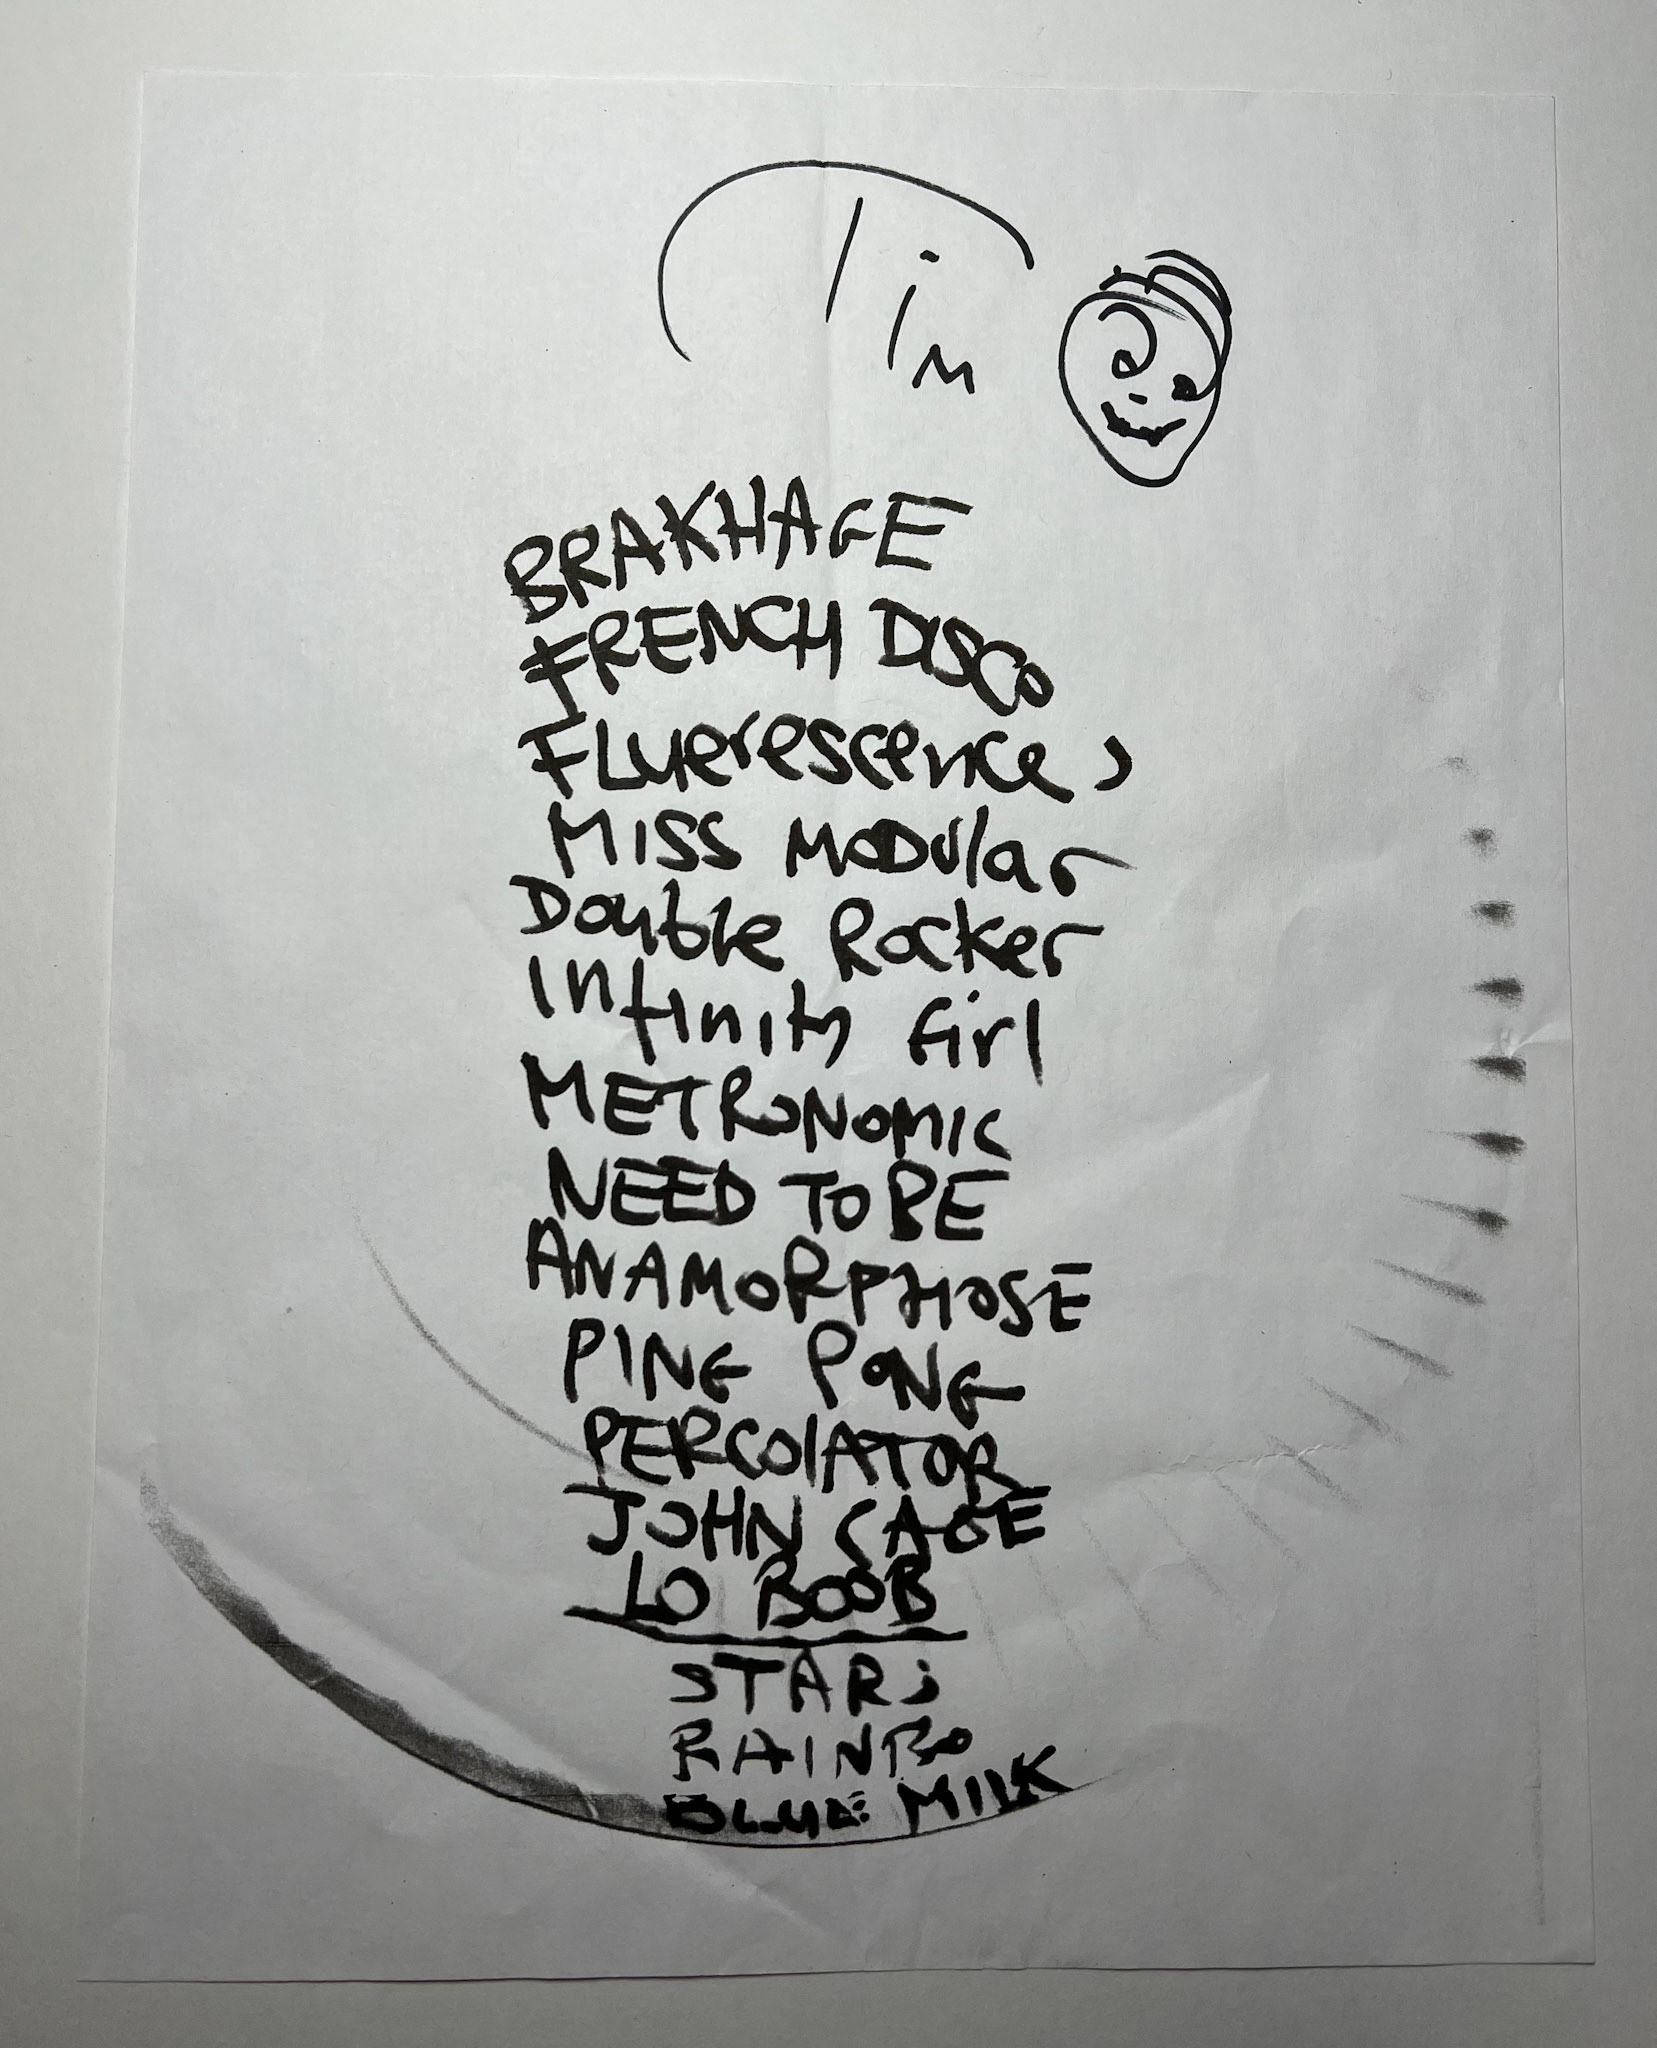 Tim
BRAKHAGE
FRENCH DISCO
Fluerescences
Miss Modular
Double Rocker
Infinity Girl
METRONOMIC
NEED TO BE
ANAMORPHOSE
PING PONG
PERCOLATOR
JOHN CAGE
LO BOOB
STARS
RAINBO
BLUE MILK